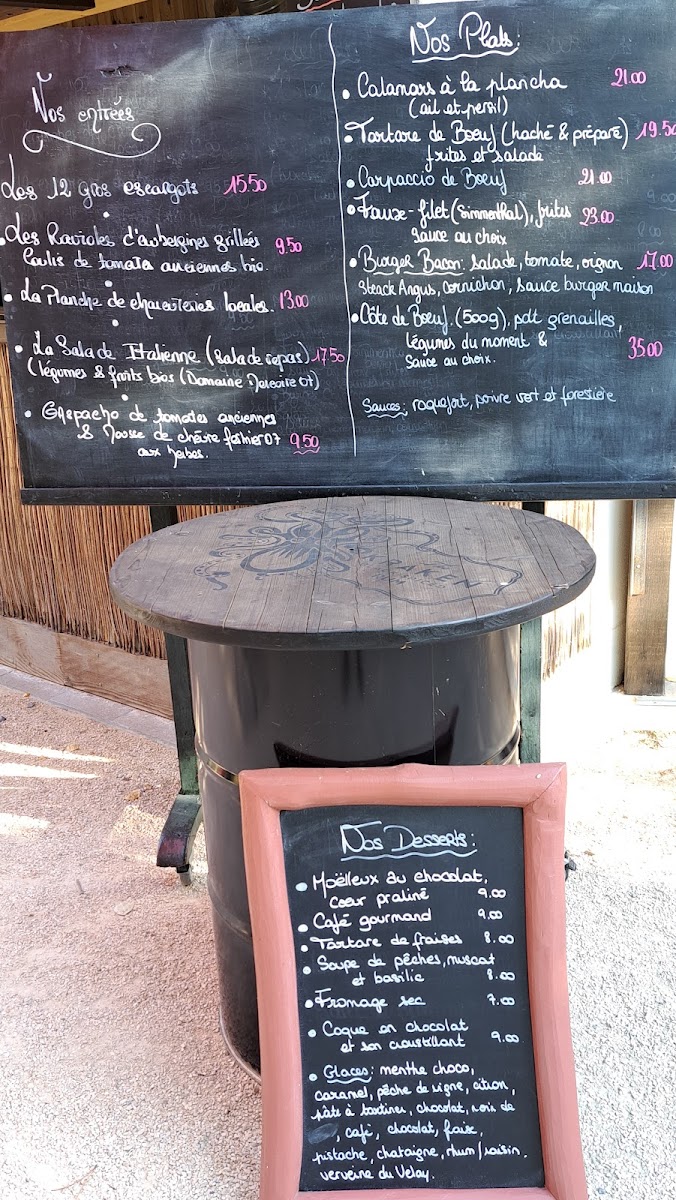 Nos entrées
Les 12 gros escargots 15.50
Les Ravioles d'aubergines grillées 9.50
Coulis de tomate anciennes bio.
La Planche de charcuteries locales. 13.00
La Salade Italienne (salade repas) 17.50
(légumes & fruits bios (Domaine 07)
Gaspacho de tomates anciennes
& Mousse de chèvre fermier 07 9.50
aux herbes.
Nos Plats:
Calamars à la plancha 21.00
(ail et persil)
Tartare de Boeuf (haché & préparé) 19.50
frites et salade
Carpaccio de Boeuf 21.00
Faux-filet (Simmenthal), frites 23.00
Sauce au choix
Burger Bacon: Salade, tomate, oignon 17.00
Steack Angus, cornichon, sauce burger maison
Côte de Boeuf. (500g), pdt grenailles,
légumes du moment & 35.00
Sauce au choix.
Sauces: roquefort, poivre vert et forestière
KRAKEN
Nos Desserts:
Moëlleux au chocolat,
coeur praliné 9.00
Café gourmand 9.00
Tartare de fraises 8.00
Soupe de pêches, muscat
et basilic 8.00
Fromage sec 7.00
Coque en chocolat
et son croustillant 9.00
Glaces: menthe choco,
caramel, pêche de vigne, citron,
pâte à tartiner, chocolat, noix de
, café, chocolat, fraise,
pistache, chataigne, rhum/raisin.
verveine du Velay.